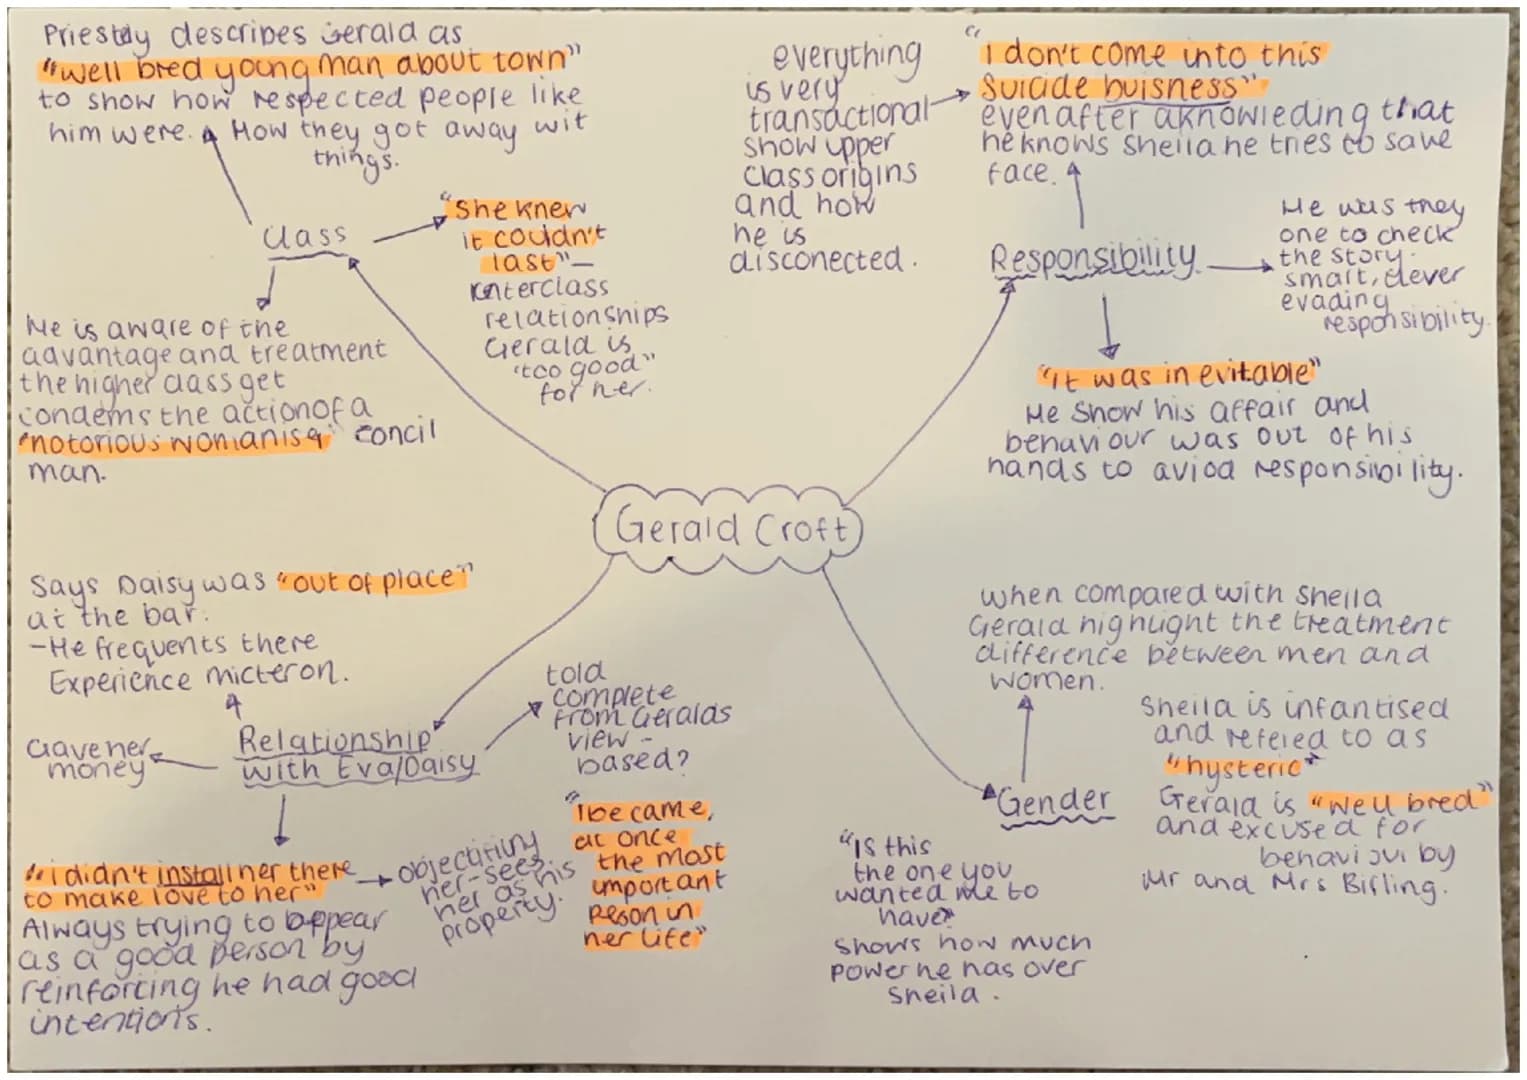 Priestly describes Gerald as
"well bred young man about town"
to show how respected people like
him were. How they got away wit
things.
Class
"She knew
it couldn't
last" -
interclass
relationships
Gerald is
"too good"
for her.
He is aware of the
advantage and treatment
the higher class get
condems the action of a
"notorious womaniser" concil
man.
everything
is very
transactional
show upper
class origins
and how
he is
disconected.
"I don't come into this
suicide buisness"
even after aknowleding that
he knows sheila he tries to save
face.
Responsibility
He was they
one to check
the story.
smart, clever
evading
responsibility.
"it was inevitable"
He show his affair and
behaviour was out of his
hands to aviod responsibility.
Gerald Croft
Says Daisy was "out of place"
at the bar.
-He frequents there
Experience
Relationship
with Eva/Daisy
Gave her
money
told
complete
from Geralds
view -
based?
"I became,
at once
the most
important
person in
her life"
"i didn't install her there
to make love to her"
objectifing
her-sees
her as his
property.
Always trying to appear
as a good person by
reinforcing he had good
intentions.
when compared with Sheila
Gerald highlight the treatment
difference between men and
women.
Gender
Sheila is infantised
and refered to as
"hysteric"
Gerald is "well bred"
and excused for
behaviour by
Mr and Mrs Birling.
"Is this
the one you
wanted me to
have"
shows how much
power he has over
Sheila.